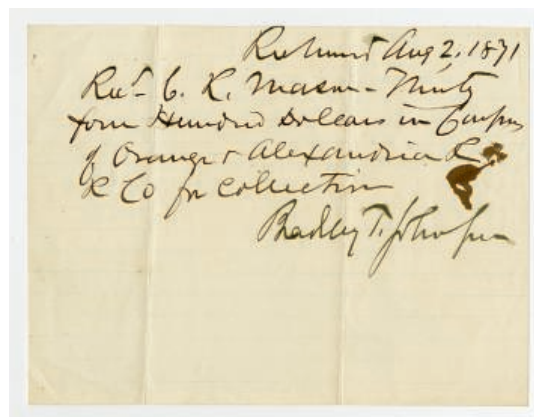 Richmond Aug 2, 1871
Recd C. R. Mason - Ninety
four Hundred Dollars in Coupons
of Orange & Alexandria R
R Co for Collection
Bradley T. Johnson